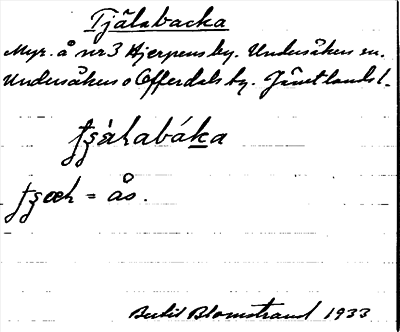 Tjälabacka
Myr. å nr 3 Hjerpens by. Undersåkers sn.
Undersåkers o Offerdals tg. Jämtlands l.
tʂàlabáka
tʂœk = ås.
Bertil Blomstrand 1933